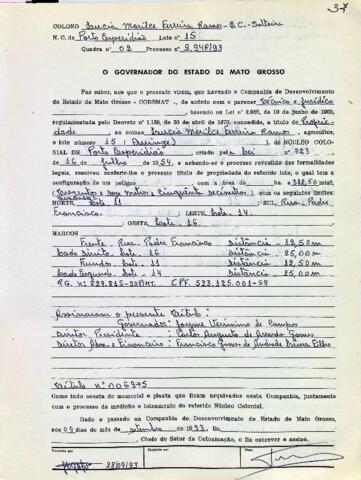 37
COLONO Laucia Morilce Ferreira Ramos - B.C. - Solteira
N. C. de Porto Esperidião Lote n.º 15
Quadra n° 02 Processo n° 2.948/93
O GOVERNADOR DO ESTADO DE MATO GROSSO
Faz saber, aos que o presente virem, que havendo a Companhia de Desenvolvimento
do Estado de Mato Grosso - CODEMAT -, de acordo com o parecer Técnico e Jurídico
, baseado na Lei n° 2.935, de 10 de junho de 1969,
regulamentada pelo Decreto n° 1.138, de 30 de abril de 1970, concedido, a título de Proprie-
dade ao colono Laucia Morilce Ferreira Ramos, agricultor,
o lote número 15 (Quinze) DO NÚCLEO
COLONIAL DE Porto Esperidião, criado pela Lei n° 723
de 16 de julho de 1954, e achando-se o processo revestido das formalidades
legais, resolveu conferir-lhe o presente título de propriedade do referido lote, o qual tem
a configuração de um polígono com a área de 312,50 mts²,
(Trezentos e doze metros e cinquenta decímetros), com os seguintes limites:
quadrados
NORTE, Lote 11 ; SUL, Rua Padre
Francisco. ; LESTE, Lote - 14.
; OESTE, Lote - 16
MARCOS
Frente Rua Padre Francisco Distância - 12,50m
Lado Direito Lote - 16 Distância - 25,00m
Fundos Lote - 11 Distância - 12,50m
Lado Esquerdo Lote - 14 Distância - 25,00m
RG. n° 829.815-SSP/MT. CPF. 523.125.001-59
Assinaram o presente título:
Governador: Jayme Veríssimo de Campos
Diretor Presidente: Carlos Augusto de Arruda Gomes
Diretor Adm. e Financeiro: Francisco Gomes de Andrade Lima Filho
Título n° 006975
Como tudo consta do memorial e planta que ficam arquivados nesta Companhia, juntamente
com o processo de medição e loteamento do referido Núcleo Colonial.
Dado e passado na Companhia de Desenvolvimento do Estado de Mato Grosso,
aos 09 dias do mês de setembro de 1993. Eu,
Chefe do Setor de Colonização, o fiz escrever e assino.
28/09/93